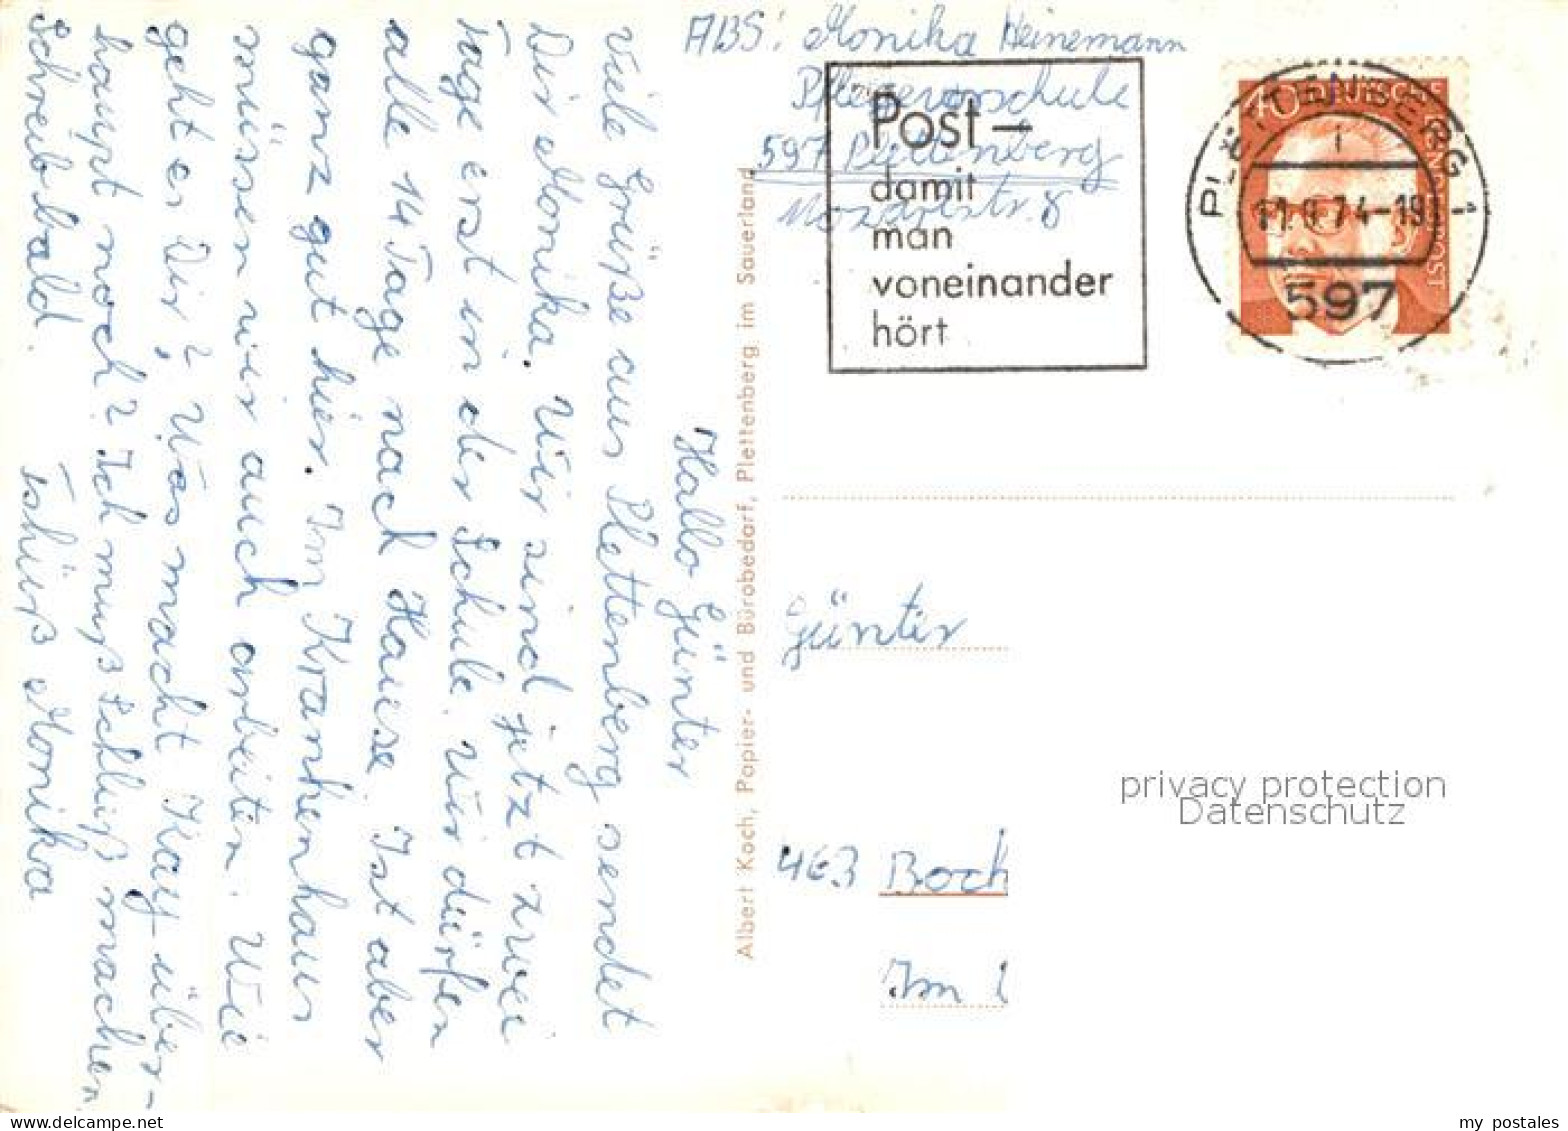 ABS: Monika Heinemann
Pflegevorschule
597 Plettenberg
Mozartstr. 8
Post –
damit
man
voneinander
hört
PLETTENBERG 1
74-19
597
40 DEUTSCHE
BUNDESPOST
Hallo Günter
Viele Grüße aus Plettenberg sendet
Dir Monika. Wir sind jetzt zwei
Tage erst in der Schule. Wir dürfen
alle 14 Tage nach Hause. Ist aber
ganz gut hier. Im Krankenhaus
müssen wir auch arbeiten. Wie
geht es Dir? Was macht Kay über-
haupt noch? Ich muß Schluß machen
Schreib bald.
Tshüß Monika
Albert Koch, Papier- und Bürobedarf, Plettenberg im Sauerland
Günter
463 Boch
Im
privacy protection
Datenschutz
my postales